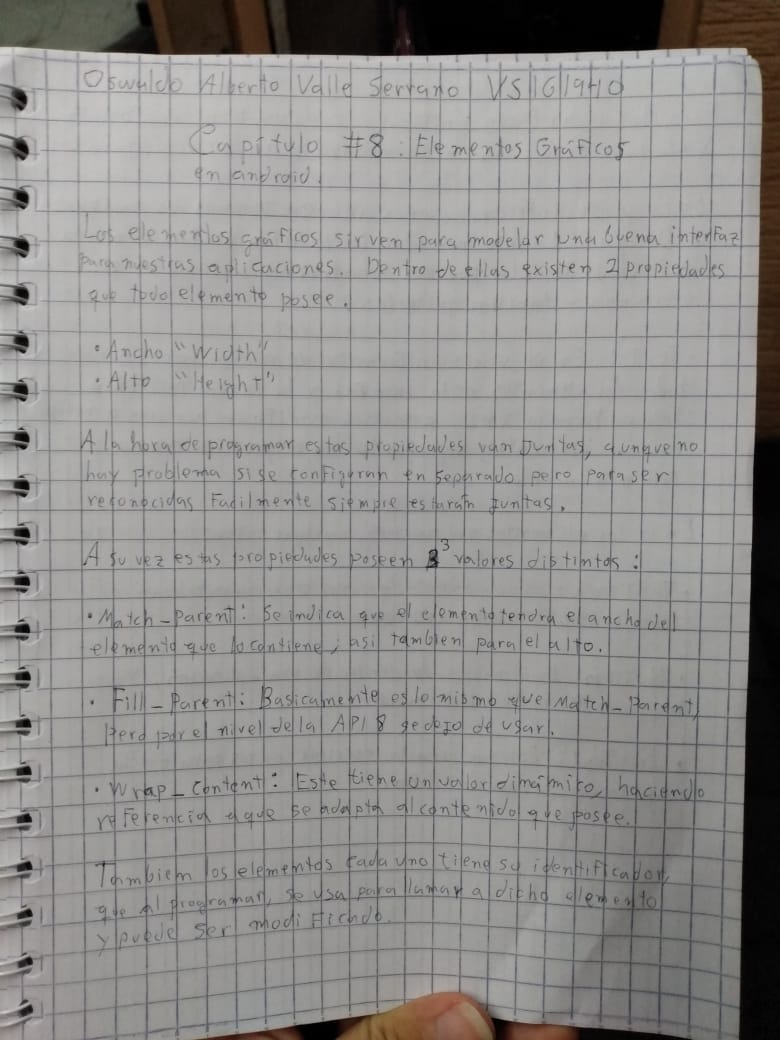 Oswaldo Alberto Valle Serrano VS161940
Capítulo #8: Elementos Gráficos
en android.
Los elementos gráficos sirven para modelar una buena interfaz
para nuestras aplicaciones. Dentro de ellas existen 2 propiedades
que todo elemento posee.
• Ancho "Width"
• Alto "Height"
A la hora de programar estas propiedades van Juntas, aunque no
hay problema si se configuran en separado pero para ser
reconocidas Facilmente siempre estarán Juntas.
A su vez estas propiedades poseen 3 valores distintos:
• Match_Parent: Se indica que el elemento tendra el ancho del
elemento que lo contiene, asi tambien para el alto.
• Fill_Parent: Basicamente es lo mismo que Match_Parent,
Pero por el nivel de la API 8 se dejo de usar.
• Wrap_content: Este tiene un valor dinámico, haciendo
referencia a que se adapta al contenido que posee.
Tambien los elementos cada uno tiene su identificador,
que al programar, se usa para llamar a dicho elemento
y puede ser modificado.